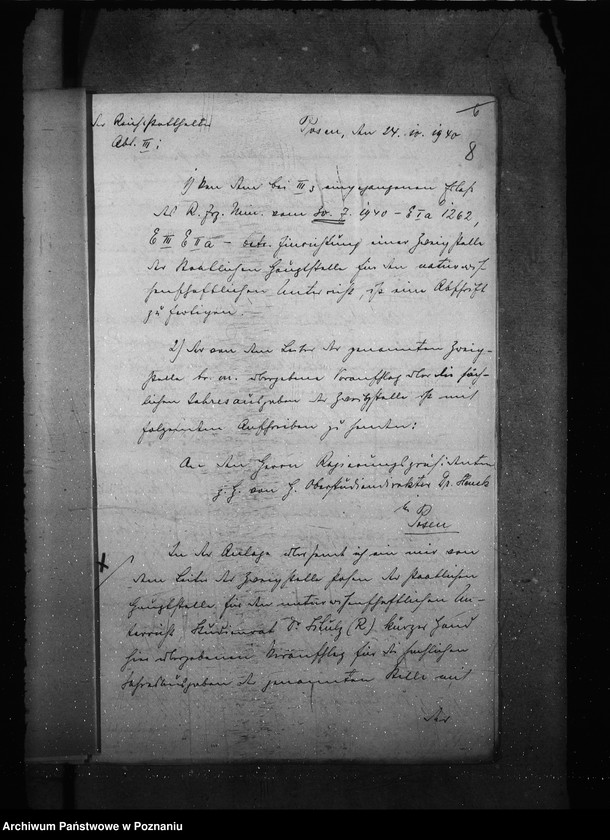 6
der Reichsstatthalter Posen, den 24. 10. 1940
Abt. III; 8
1) Von dem bei III 3 eingegangenen Erlaß
des R. Erz. Min. vom 30. 7. 1940 – E Ia 1262,
E III E II a – betr. Einrichtung einer Zweigstelle
der staatlichen Hauptstelle für den naturwis-
senschaftlichen Unterricht, ist eine Abschrift
zu fertigen.
2) Der von dem Leiter der genannten Zweig-
stelle br. m. übergebene Voranschlag über die säch-
lichen Jahresausgaben der Zweigstelle ist mit
folgendem Anschreiben zu senden:
An den Herrn Regierungspräsidenten
z. H. von H. Oberstudiendirektor Dr.
in
Posen
In der Anlage übersende ich ein mir von
dem Leiter der Zweigstelle Posen der staatlichen
Hauptstelle für den naturwissenschaftlichen Un-
terricht, Studienrat Dr. Schulz (R.) kurzer Hand
hier übergebenen Voranschlag für die sachlichen
Jahresausgaben der genannten Stelle mit
der
Archiwum Państwowe w Poznaniu